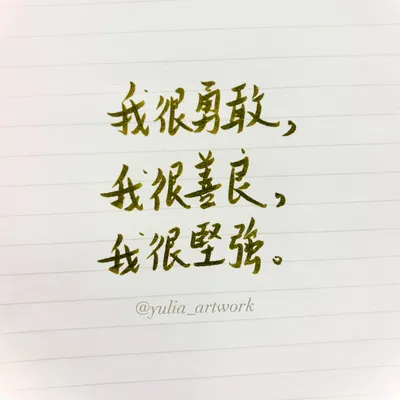 我很勇敢,
我很善良,
我很堅強。
@yulia_artwork